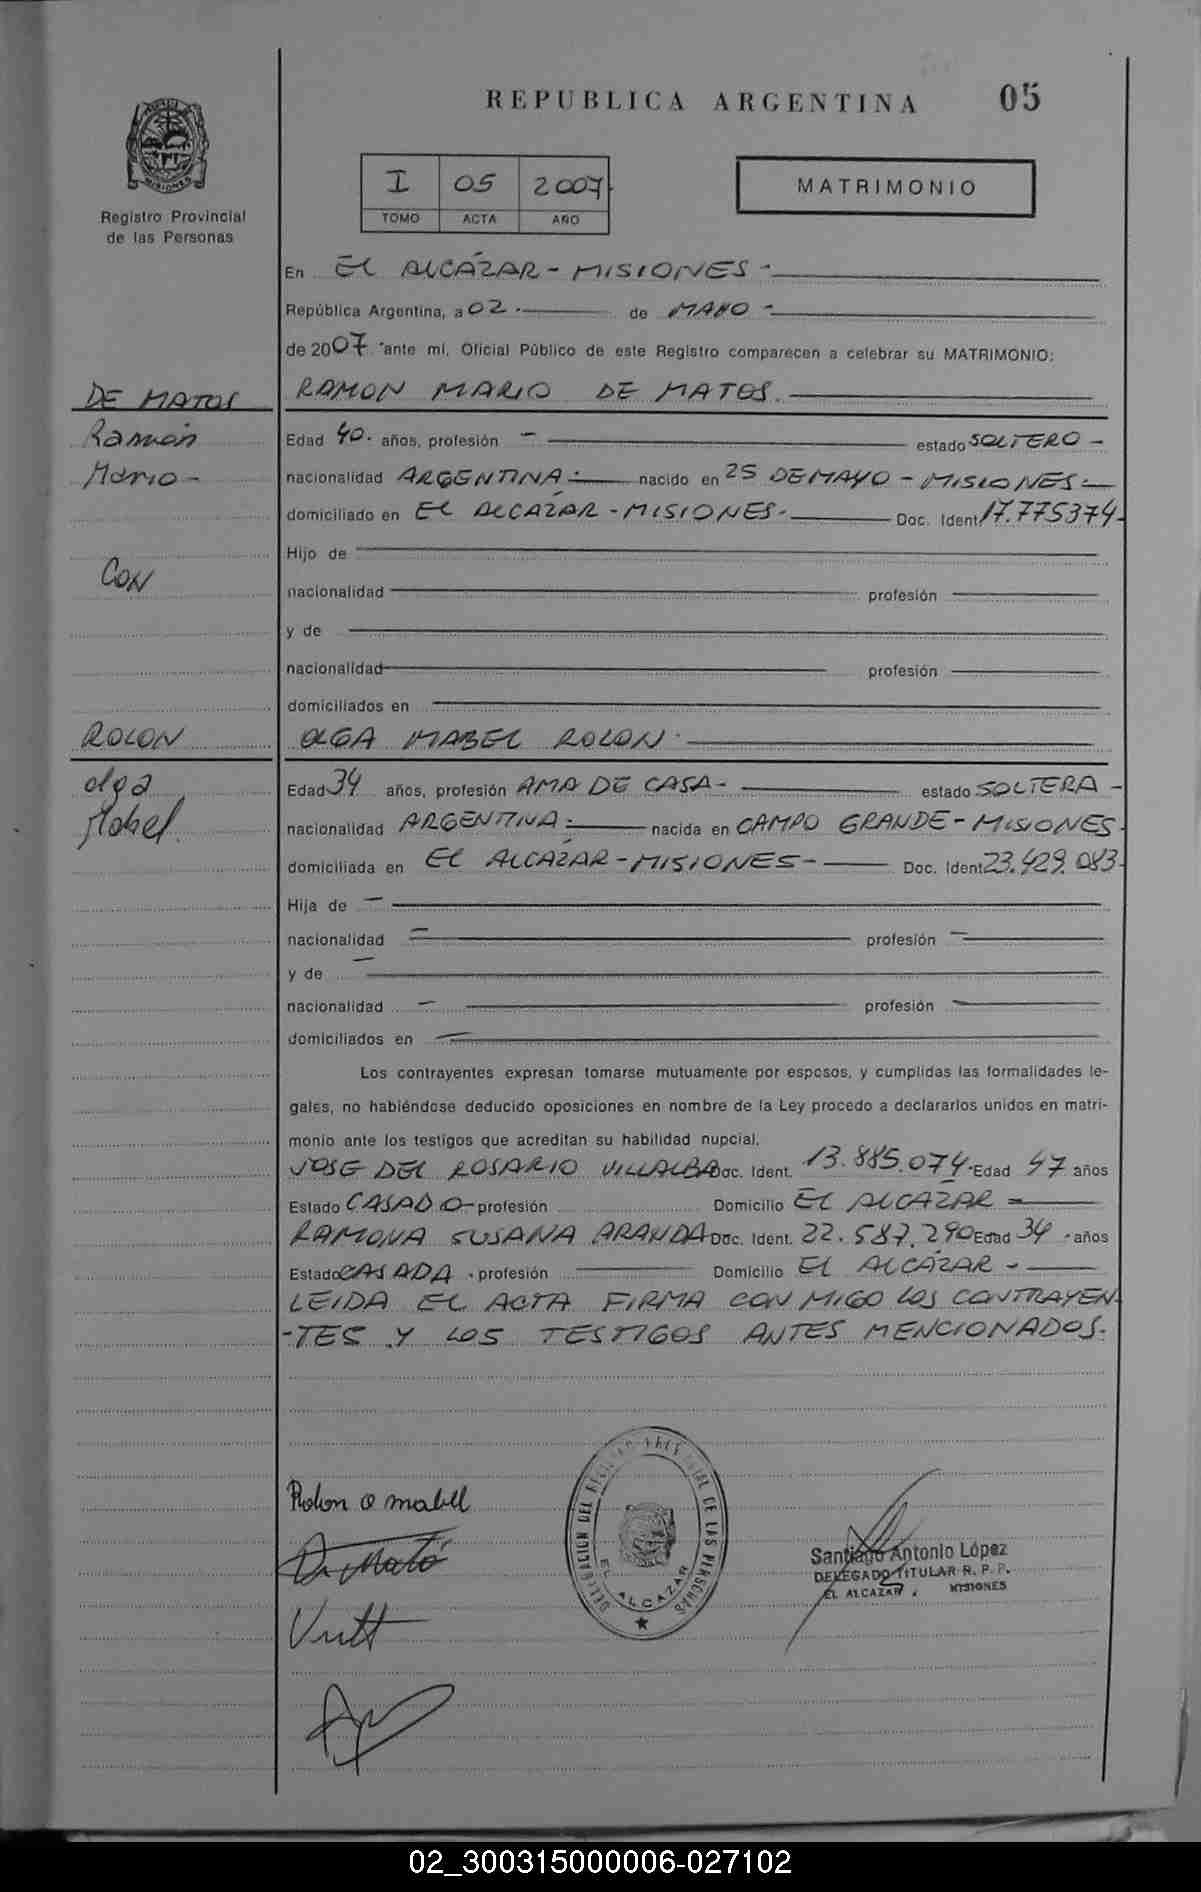 REPUBLICA ARGENTINA 05
I 05 2007
TOMO ACTA AÑO
MATRIMONIO
MISIONES
Registro Provincial
de las Personas
En EL ALCÁZAR - MISIONES -
República Argentina, a 02 - de MAYO -
de 2007 ante mí, Oficial Público de este Registro comparecen a celebrar su MATRIMONIO:
DE MATOS
RAMON MARIO DE MATOS.
Ramón
Edad 40. años, profesión - estado SOLTERO -
Mario -
nacionalidad ARGENTINA - nacido en 25 DE MAYO - MISIONES -
domiciliado en EL ALCÁZAR - MISIONES - Doc. Ident 17.775374-
Hijo de
CON
nacionalidad profesión
y de
nacionalidad profesión
domiciliados en
ROLON
OLGA MABEL ROLON -
Olga
Edad 34 años, profesión AMA DE CASA - estado SOLTERA -
Mabel.
nacionalidad ARGENTINA - nacida en CAMPO GRANDE - MISIONES -
domiciliada en EL ALCAZAR - MISIONES - Doc. Ident 23.429.083-
Hija de -
nacionalidad - profesión -
y de -
nacionalidad - profesión -
domiciliados en -
Los contrayentes expresan tomarse mutuamente por esposos, y cumplidas las formalidades le-
gales, no habiéndose deducido oposiciones en nombre de la Ley procedo a declararlos unidos en matri-
monio ante los testigos que acreditan su habilidad nupcial.
JOSE DEL ROSARIO VILLALBA Doc. Ident. 13.885.074- Edad 47 años
Estado CASADO - profesión Domicilio EL ALCÁZAR -
RAMONA SUSANA ARANDA Doc. Ident. 22.587.290 Edad 34 - años
Estado CASADA - profesión Domicilio EL ALCÁZAR -
LEIDA EL ACTA FIRMA CON MIGO LOS CONTRAYEN-
-TES Y LOS TESTIGOS ANTES MENCIONADOS.
Rolon O mabel
DELEGACION DEL REGISTRO PROVINCIAL DE LAS PERSONAS
EL ALCAZAR
Santiago Antonio López
DELEGADO TITULAR R. P. P.
EL ALCAZAR MISIONES
02_300315000006-027102